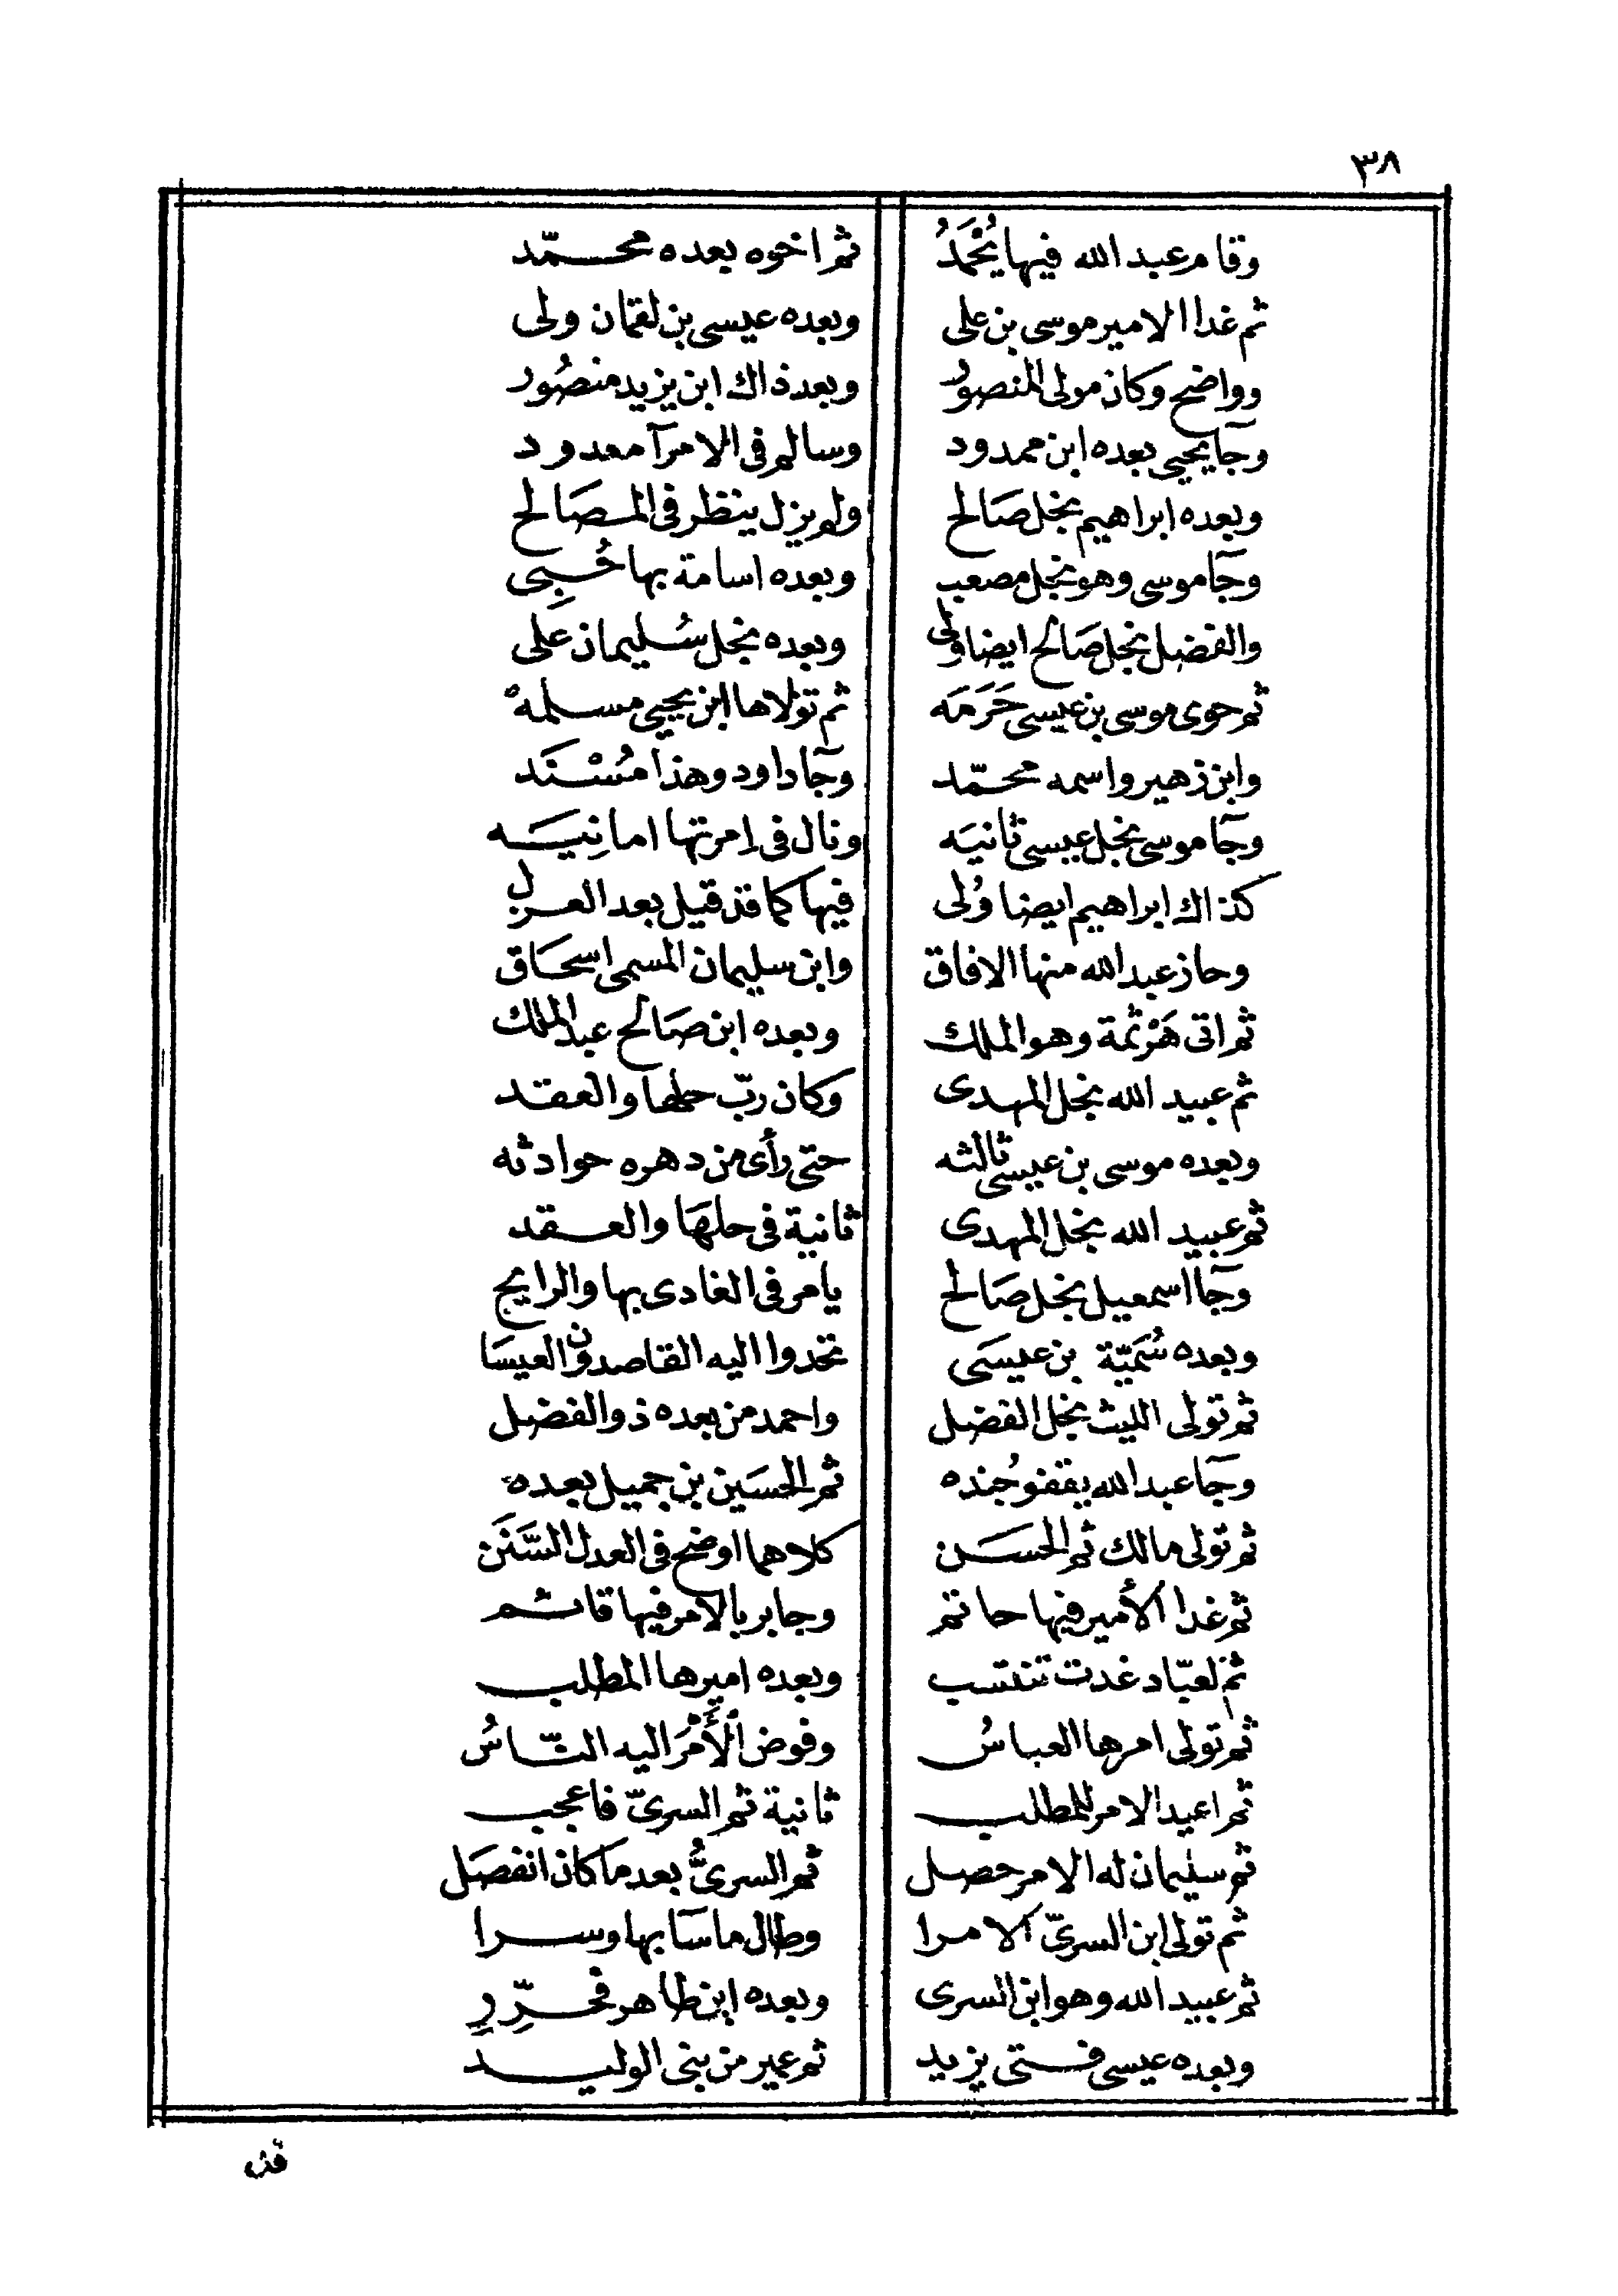 ٣٨
وقام عبد الله فيها يُحْمَدُ ثم اخوه بعده محمّد
ثم غدا الامير موسى بن على وبعده عيسى بن لقمان ولى
وواضح وكان مولى المنصور وبعد ذاك ابن يزيد منصُور
وجا يحيى بعده ابن ممدود وسالم فى الامرآ معدود
وبعده ابراهيم نجل صَالح ولم يزل ينظر فى المصَالح
وجآ موسى وهو نجل مصعب وبعده اسامة بها حُبِى
والفضل نجل صَالح ايضا ولى وبعده نجل سُليمان على
ثم حوى موسى بن عيسى حَرَمَه ثم تولاها ابن يحيى مسلمهْ
وابن زهير واسمه محمّد وجآ داود وهذا مُسْنَد
وجآ موسى نجل عيسى ثانيَه ونال فى اِمرتها امانِيَه
كذاك ابراهيم ايضا وُلى فيها كما قد قيل بعد العزل
وحاز عبد الله منها الافاق وابن سليمان المسمى اسحَاق
ثم اتى هَرْثمة وهو الملك وبعده ابن صَالح عبد الملك
ثم عبيد الله نجل المهدى وكان ربّ حلها والعقد
وبعده موسى بن عيسى ثالثه حتى رأى من دهره حوادثه
ثم عبيد الله نجل المهدى ثانية فى حلهَا والعقد
وجآ اسمعيل نجل صَالح يامر فى الغادى بها والرايح
وبعده سُمَيّة بن عيسَى تحدوا اليه القاصدون العيسَا
ثم تولى الليث نجل الفضل واحمد من بعده ذو الفضل
وجآ عبد الله يقفو جُنده ثم الحسَين بن جميل بعده
ثم تولى مالك ثم الحسَن كلاهما اوضح فى العدل السَّنَن
ثم غدا الأمير فيها حاتم وجابر بالامر فيها قائم
ثم لعبّاد غدت تنتسب وبعده اميرها المطلب
ثم تولى امرها العباسُ وفوض الأَمْرَ اليه النّاسُ
ثم اعيد الامر للمطلب ثانية ثم السرىّ فاعجب
ثم سليمان له الامر حصل ثم السرىُّ بعد ما كان انفصَل
ثم تولى ابن السرىّ الامرا وطال ما سآ بها وسرا
ثم عبيد الله وهو ابن السرى وبعده ابن طاهر فحرِّرِ
وبعده عيسى فتى يزيد ثم عمير من بنى الوليد